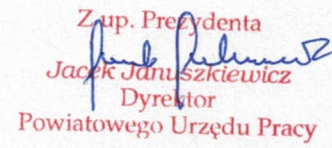 Z up. Prezydenta
Jacek Januszkiewicz
Dyrektor
Powiatowego Urzędu Pracy